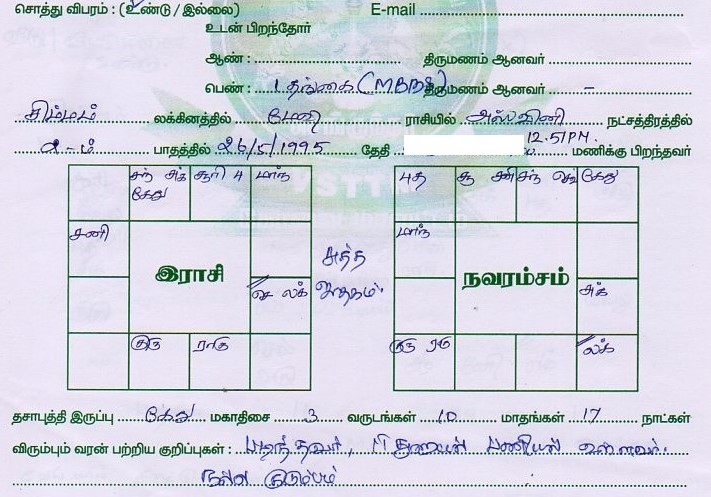 சொத்து விபரம் : (உண்டு / இல்லை) E-mail
உடன் பிறந்தோர்
ஆண் : திருமணம் ஆனவர் :
பெண் : 1 தங்கை (MBBS) திருமணம் ஆனவர் : -
சிம்மம் லக்கினத்தில் மேஷ ராசியில் அஸ்வினி நட்சத்திரத்தில்
2-ம் பாதத்தில் 26/5/1995 தேதி 12.51PM. மணிக்கு பிறந்தவர்
சந் சுக் கேது சூரி 4 மாந்
புத சூ சனி சந் செவ் கேது
சனி
மாந்
இராசி
நவாம்சம்
செ லக்
சுத்த ஜாதகம்.
சுக்
குரு ராகு
குரு ராகு லக்
தசாபுத்தி இருப்பு கேது மகாதிசை 3 வருடங்கள் 10 மாதங்கள் 17 நாட்கள்
விரும்பும் வரன் பற்றிய குறிப்புகள் : படித்தவர், பணியில் உள்ளவர்.
நல்ல குடும்பம்